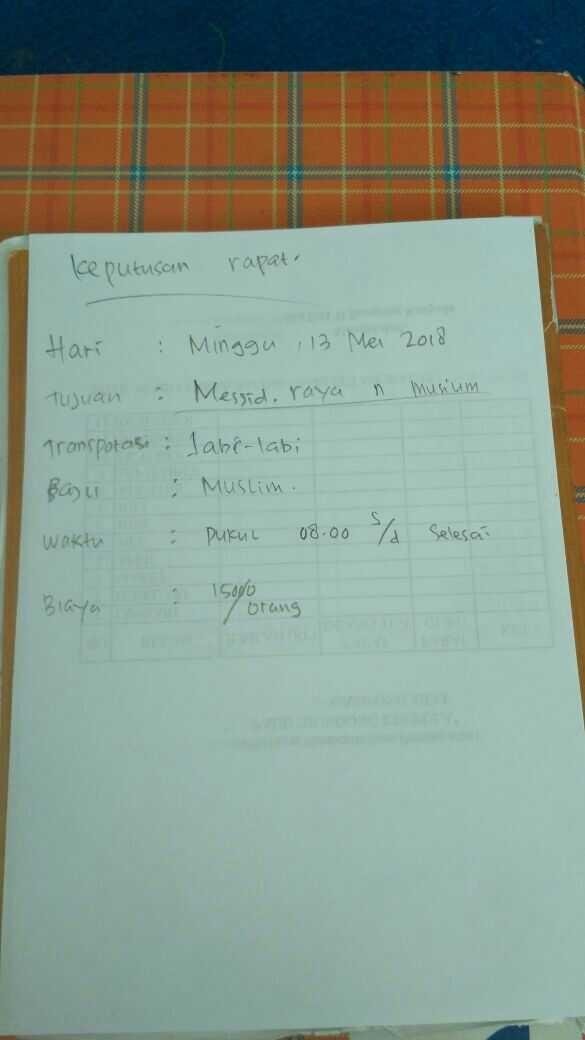 Keputusan rapat.
Hari : Minggu, 13 Mei 2018
Tujuan : Messid. raya n musium
Transpotasi : labi-labi
Baju : Muslim.
Waktu : Pukul 08.00 s/d selesai
Biaya : 15000/orang